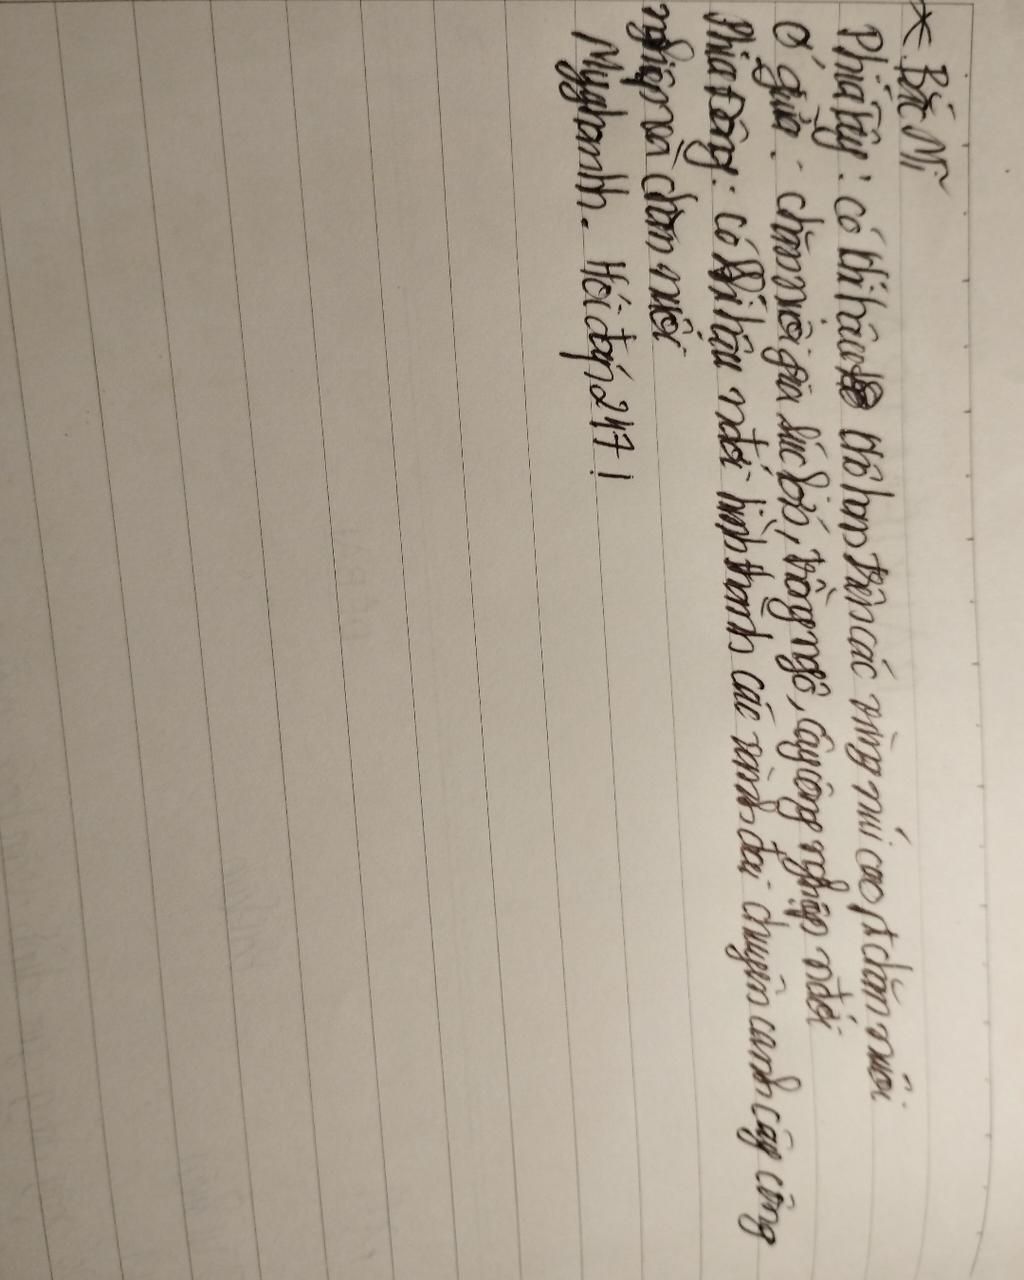 * Bắc Mĩ
Phía Tây: có khí hậu khô hạn trên các vùng núi cao pt chăn nuôi
Ở giữa: chăn nuôi gia súc lớn, trồng ngô, cây công nghiệp nđới
Phía Đông: có khí hậu nđới hình thành các vành đai chuyên canh cây công
nghiệp và chăn nuôi
Myyhanhh. Hỏi đáp 247!